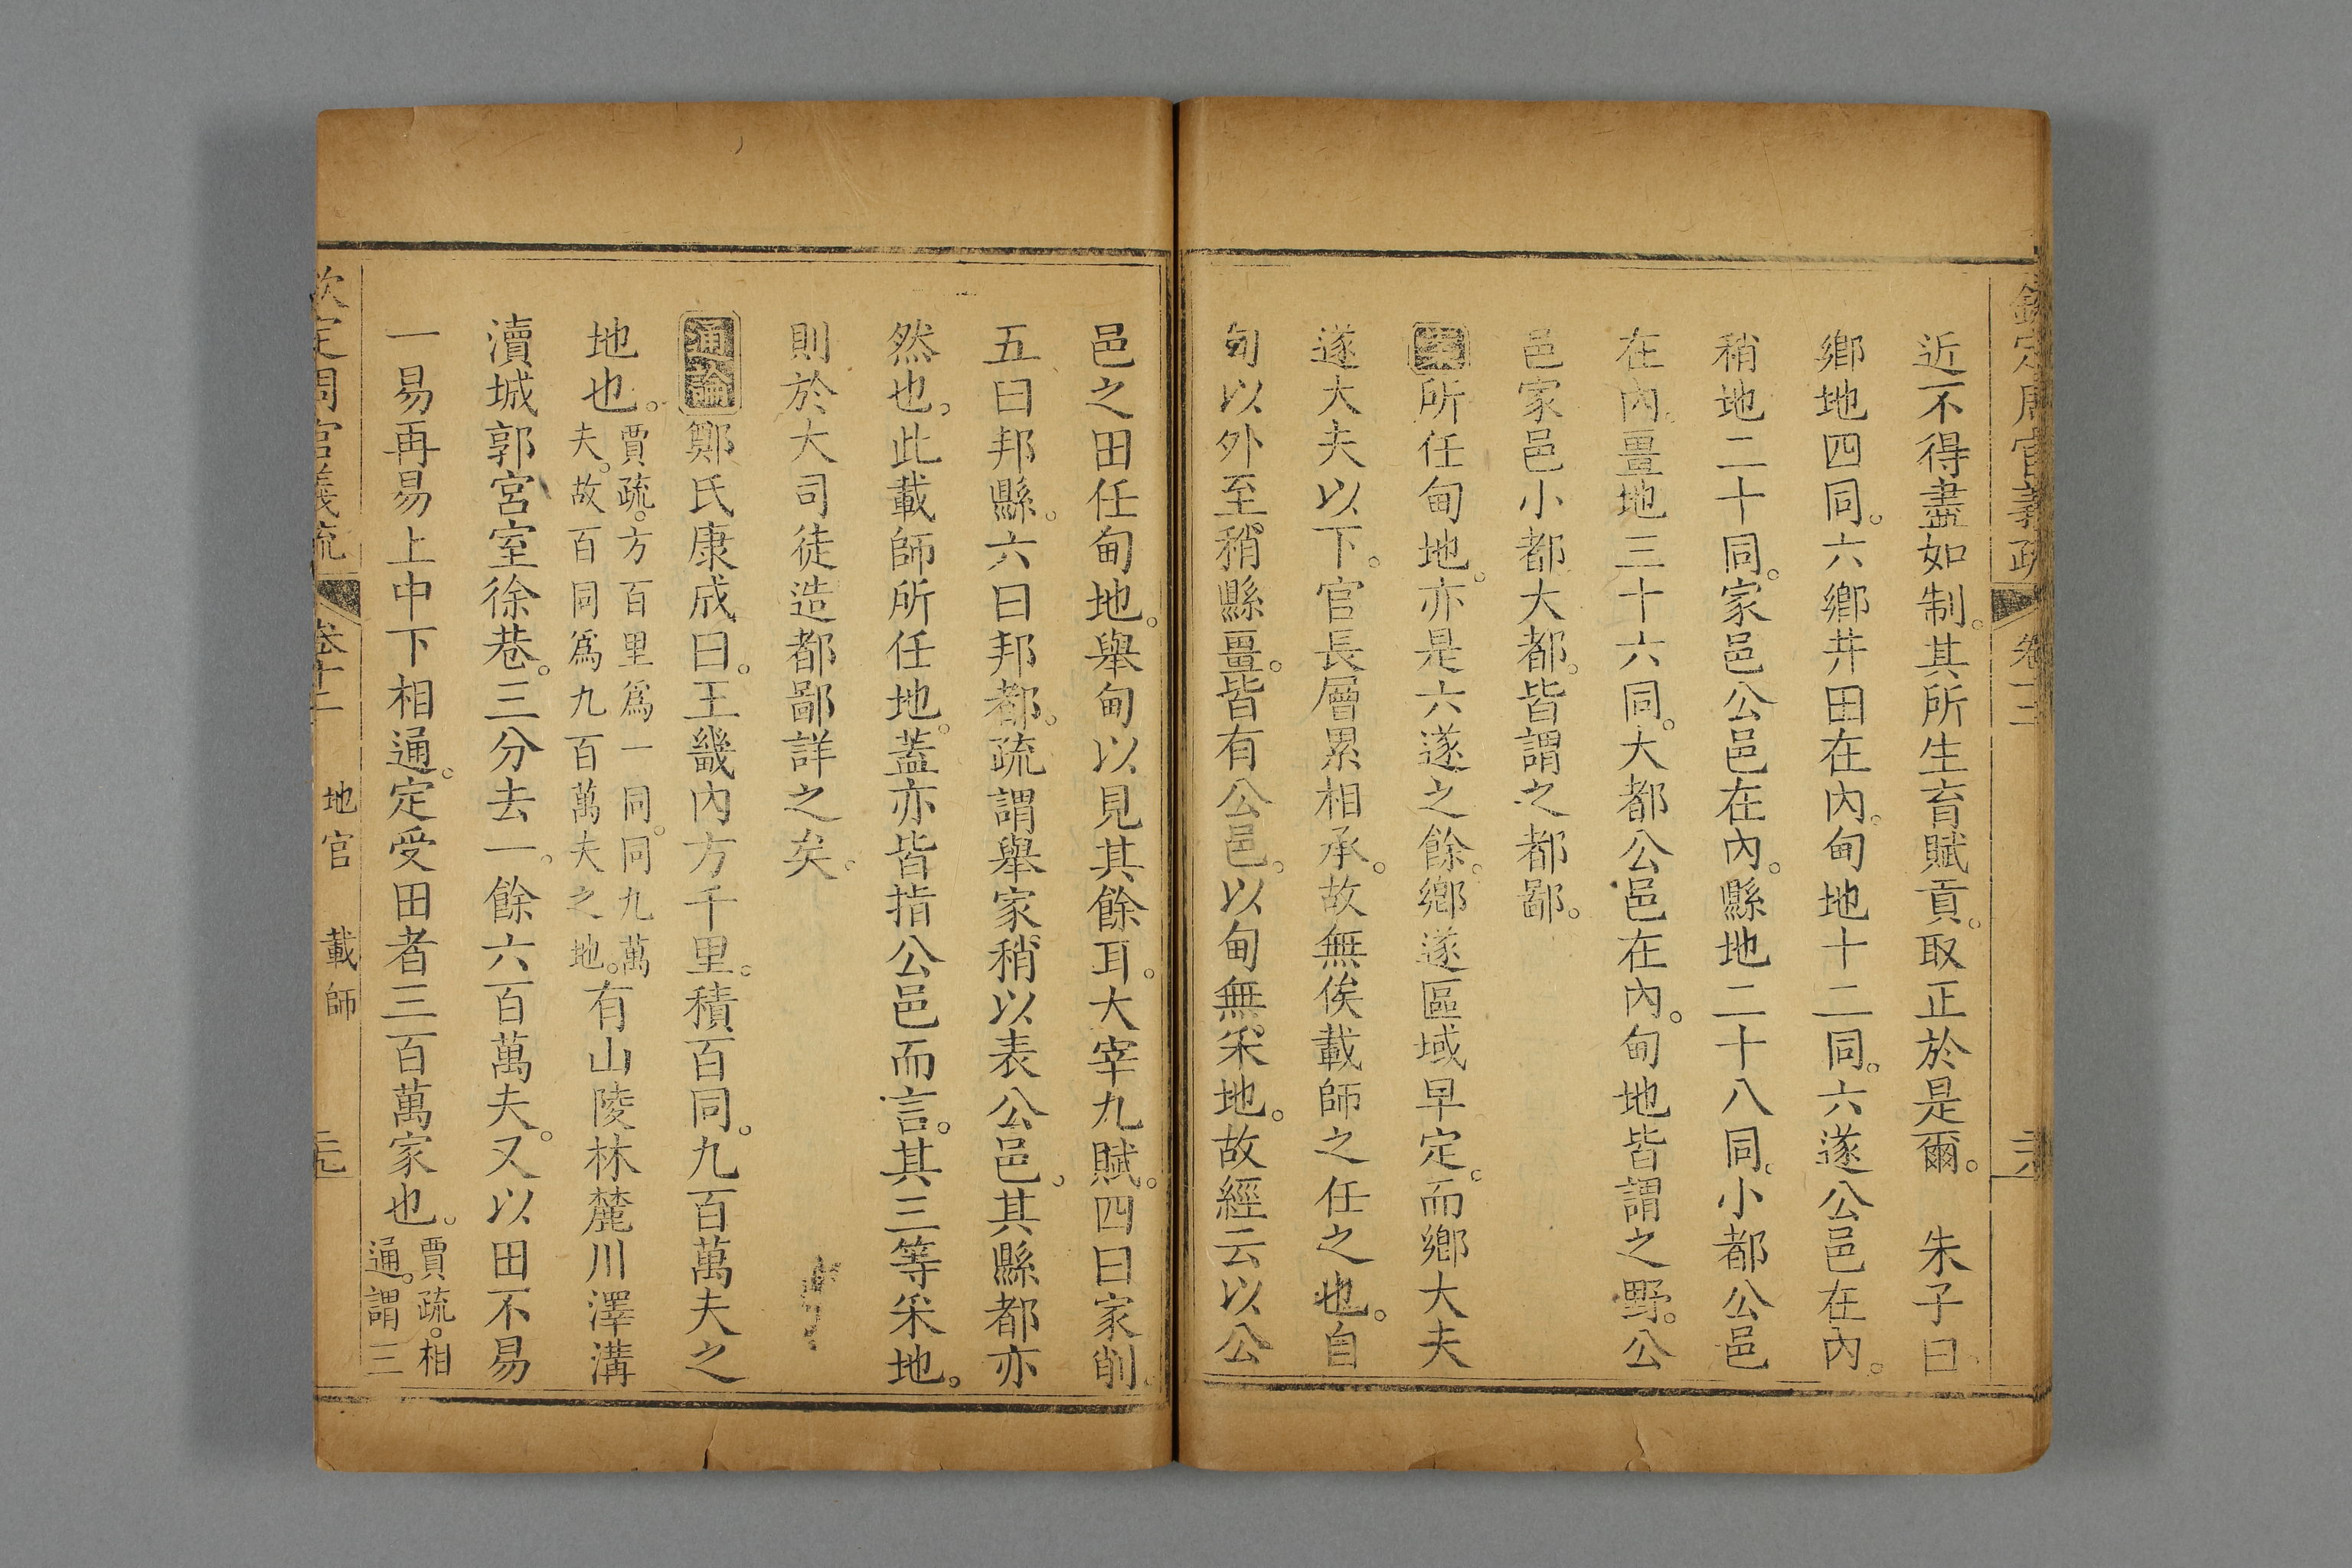 近不得盡如制。其所生育賦貢。取正於是爾。　朱子曰。
鄉地四同。六鄉井田在內。甸地十二同。六遂公邑在內。
稍地二十同。家邑公邑在內。縣地二十八同。小都公邑
在內。畺地三十六同。大都公邑在內。甸地皆謂之野。公
邑家邑小都大都。皆謂之都鄙。
所任甸地。亦是六遂之餘。鄉遂區域早定。而鄉大夫
遂大夫以下。官長層累相承。故無俟載師之任之也。自
甸以外至稍縣畺。皆有公邑。以甸無采地。故經云以公
邑之田任甸地。舉甸以見其餘耳。大宰九賦。四曰家削。
五曰邦縣。六曰邦都。疏謂舉家稍以表公邑。其縣都亦
然也。此載師所任地。蓋亦皆指公邑而言。其三等采地。
則於大司徒造都鄙詳之矣。
通論鄭氏康成曰。王畿內方千里。積百同。九百萬夫之
地也。賈疏。方百里爲一同。同九萬夫。故百同爲九百萬夫之地。有山陵林麓川澤溝
瀆城郭宮室涂巷。三分去一。餘六百萬夫。又以田不易
一易再易上中下相通。定受田者三百萬家也。賈疏。相通。謂三
欽定周官義疏　卷十二　地官　載師